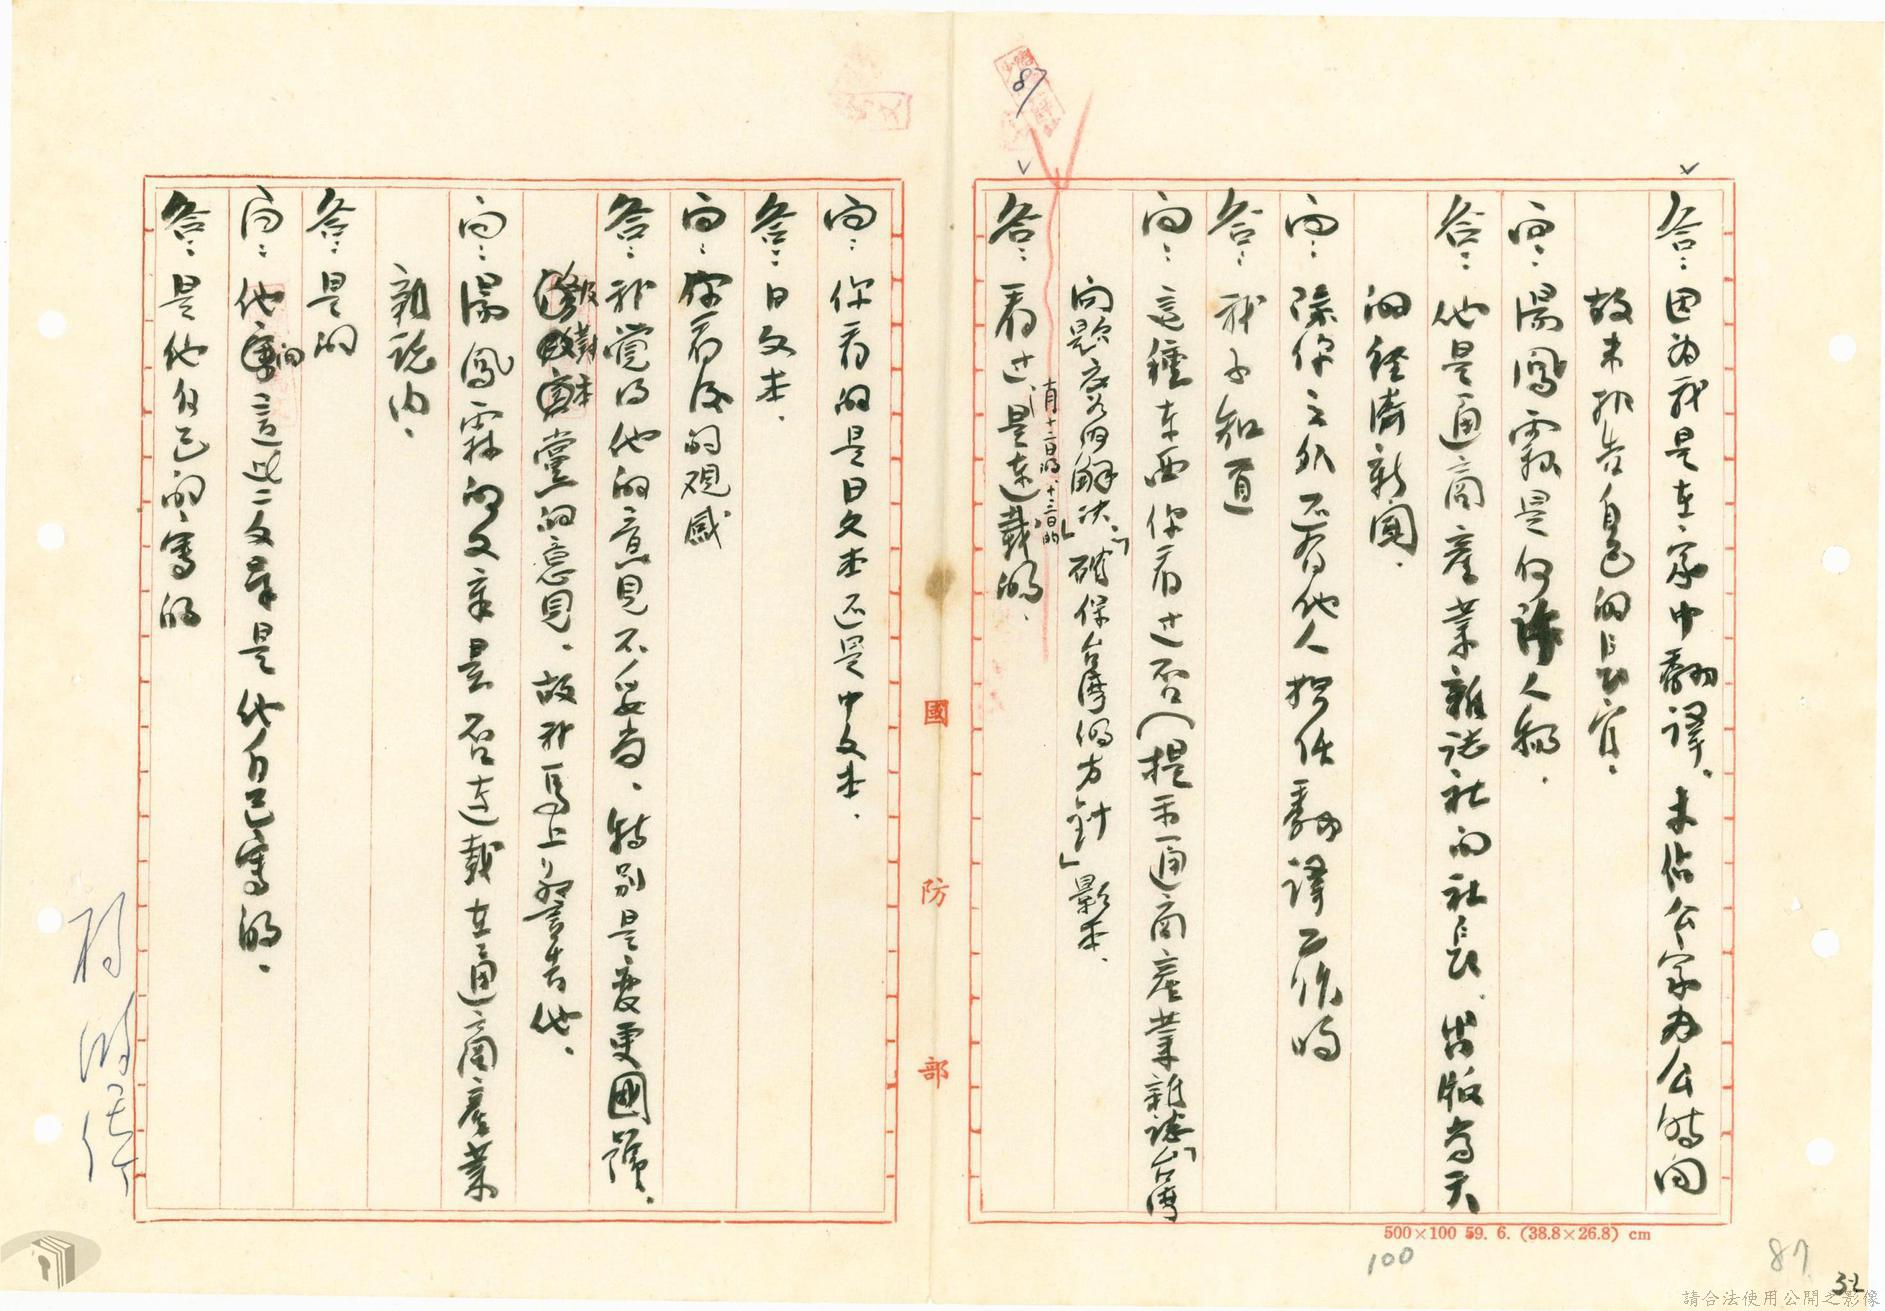 87
答：因為我是在家中翻譯，未佔公家办公時间
故未報告自己的長官。
问：湯鳳霖是何許人物。
答：他是通商產業雜誌社的社長，出版當天
的經濟新聞。
问：除你之外还有他人担任翻譯工作嗎
答：我不知道
问：這種東西你看过否（提示通商產業雜誌「台灣
问題应如何解決」「確保台灣的方針」影本。
十月十二日的、十三日的
答：看过，是連載的。
问：你看的是日文本还是中文本。
答：日文本。
问：你看後的观感
答：我覺得他的意見不妥當，特别是变更國號，
反對本黨的意見，故我馬上警告他。
问：湯鳳霖的文章是否連載在通商產業
雜誌內。
答：是的
问：他的這些文章是他自己寫的。
答：是他自己的寫的
國防部
500×100 59. 6. (38.8×26.8) cm
100
87
32
請合法使用公開之影像